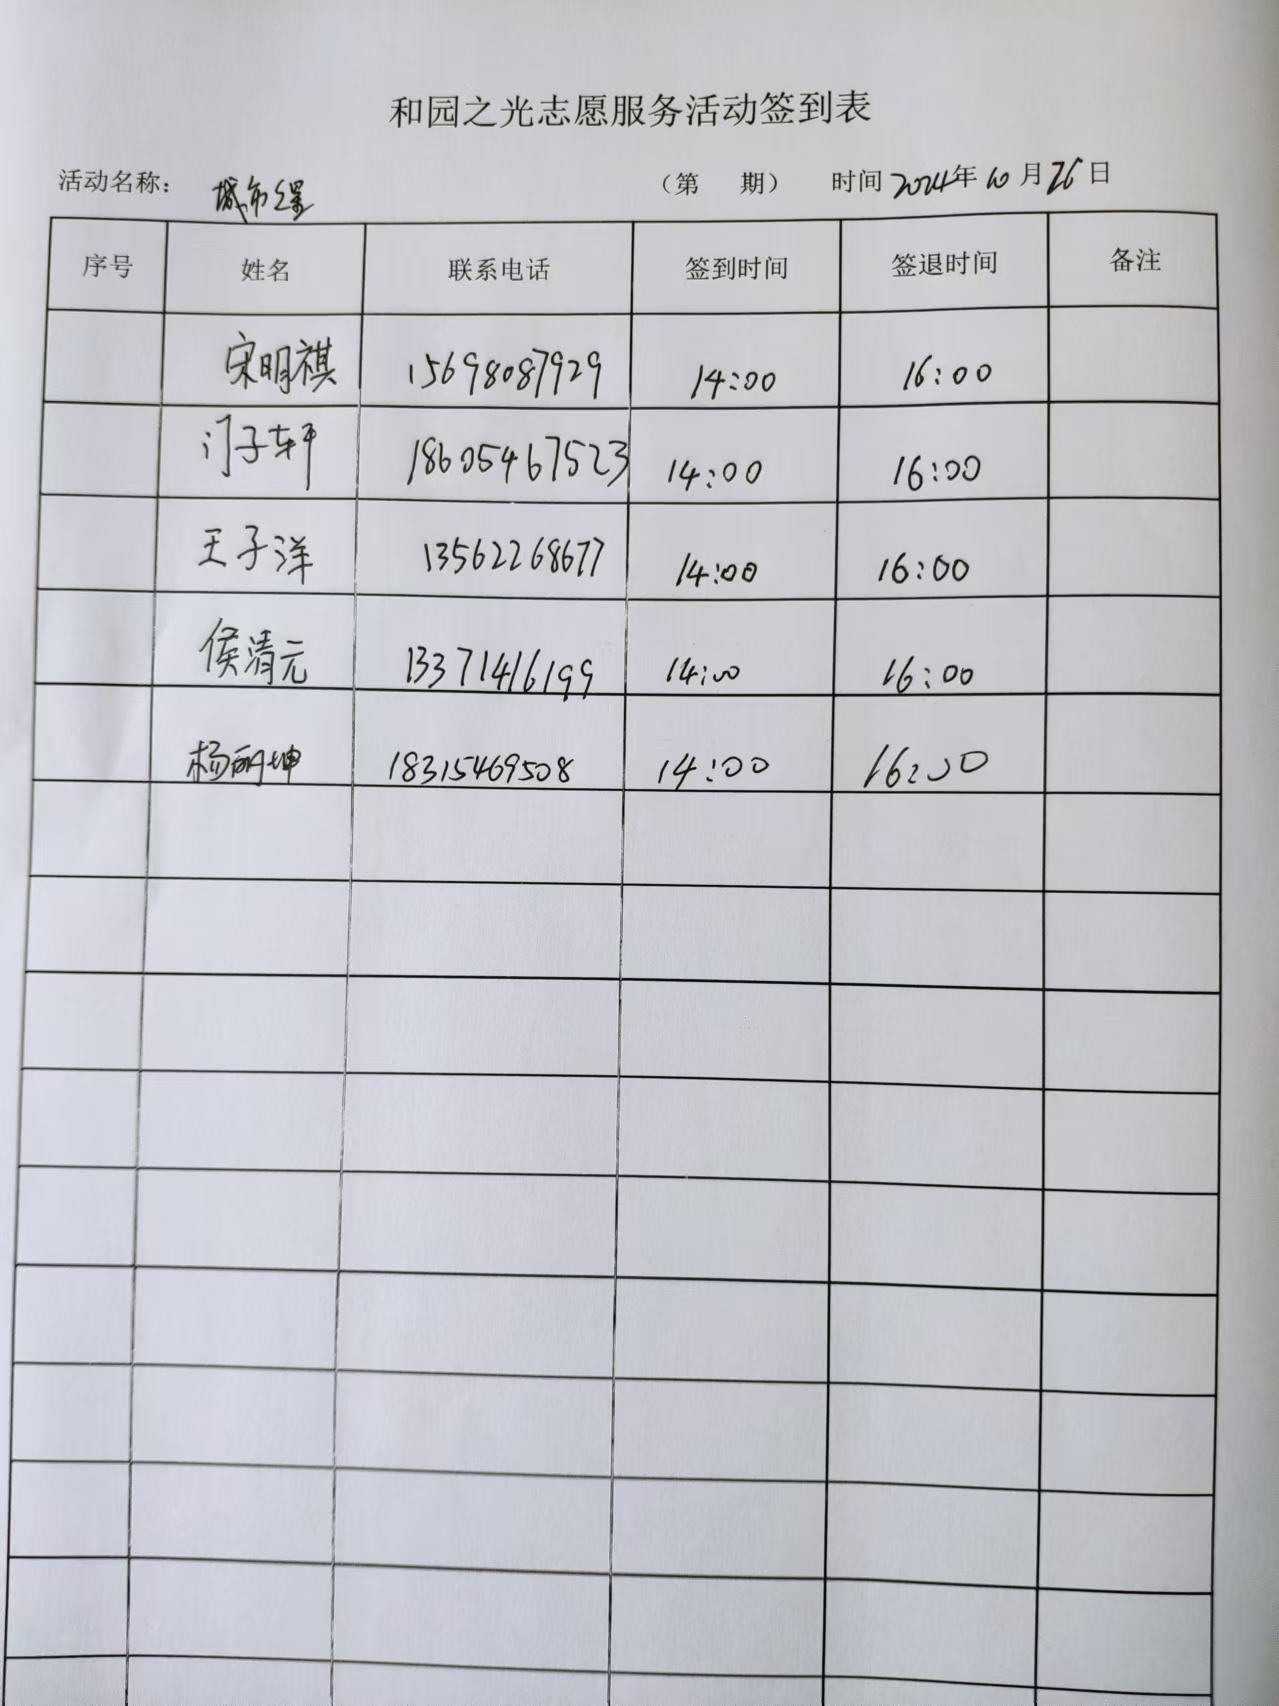 和园之光志愿服务活动签到表
活动名称： 城市 （第 期） 时间 2024年 10 月 26 日
序号 姓名 联系电话 签到时间 签退时间 备注
宋明祺 15698087929 14:00 16:00
门子轩 18605467523 14:00 16:00
王子洋 13562268677 14:00 16:00
侯清元 13371416199 14:00 16:00
杨丽坤 18315469508 14:00 16:00